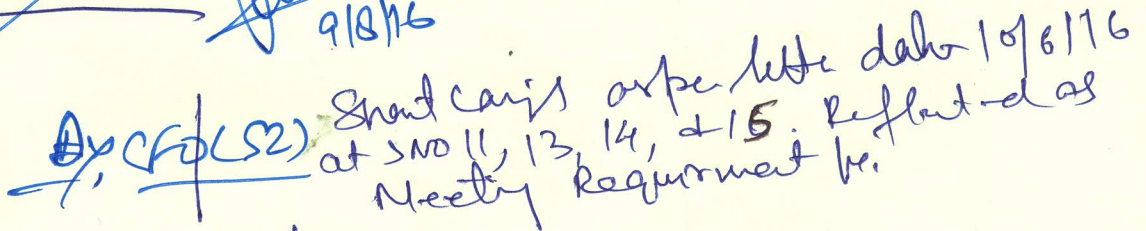 9/8/16
Dy. CFO (SZ) Short comings as per lette date 10/6/16
at SNO 11, 13, 14, & 15. Reflected as
Meeting Requirment pl.